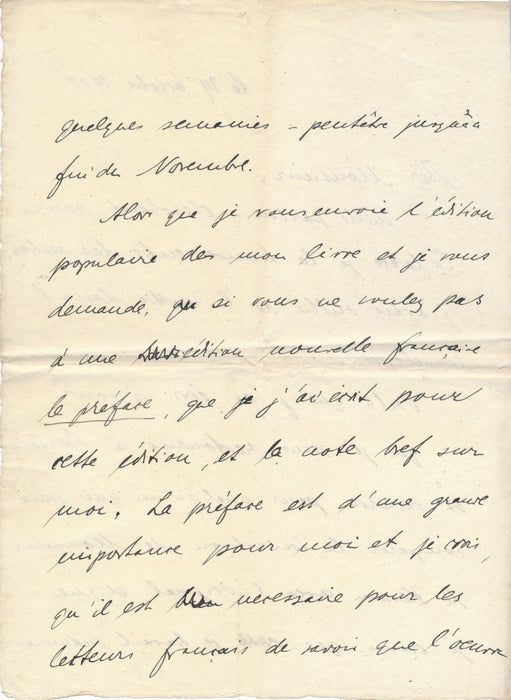 quelques semaines - peutêtre jusqu'à
fin du Novembre.
Alors que je vous envoie l'édition
populaire des mon livre et je vous
demande, que si vous ne voulez pas
à une édition nouvelle française
le préface, que je j'ai écrit pour
cette édition, et la note bref sur
moi. La préface est d'une grande
importance pour moi et je crois,
qu'il est necessaire pour les
letteurs français de savoir que l'oeuvre